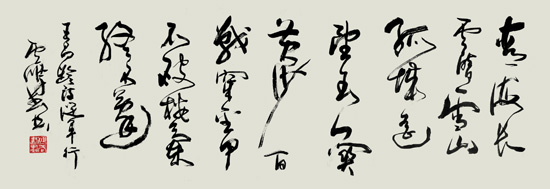 青海長
雲暗雪山
孤城遙
望玉門關
黃沙百
戰穿金甲
不破樓蘭
終不還
王昌齡詩從軍行